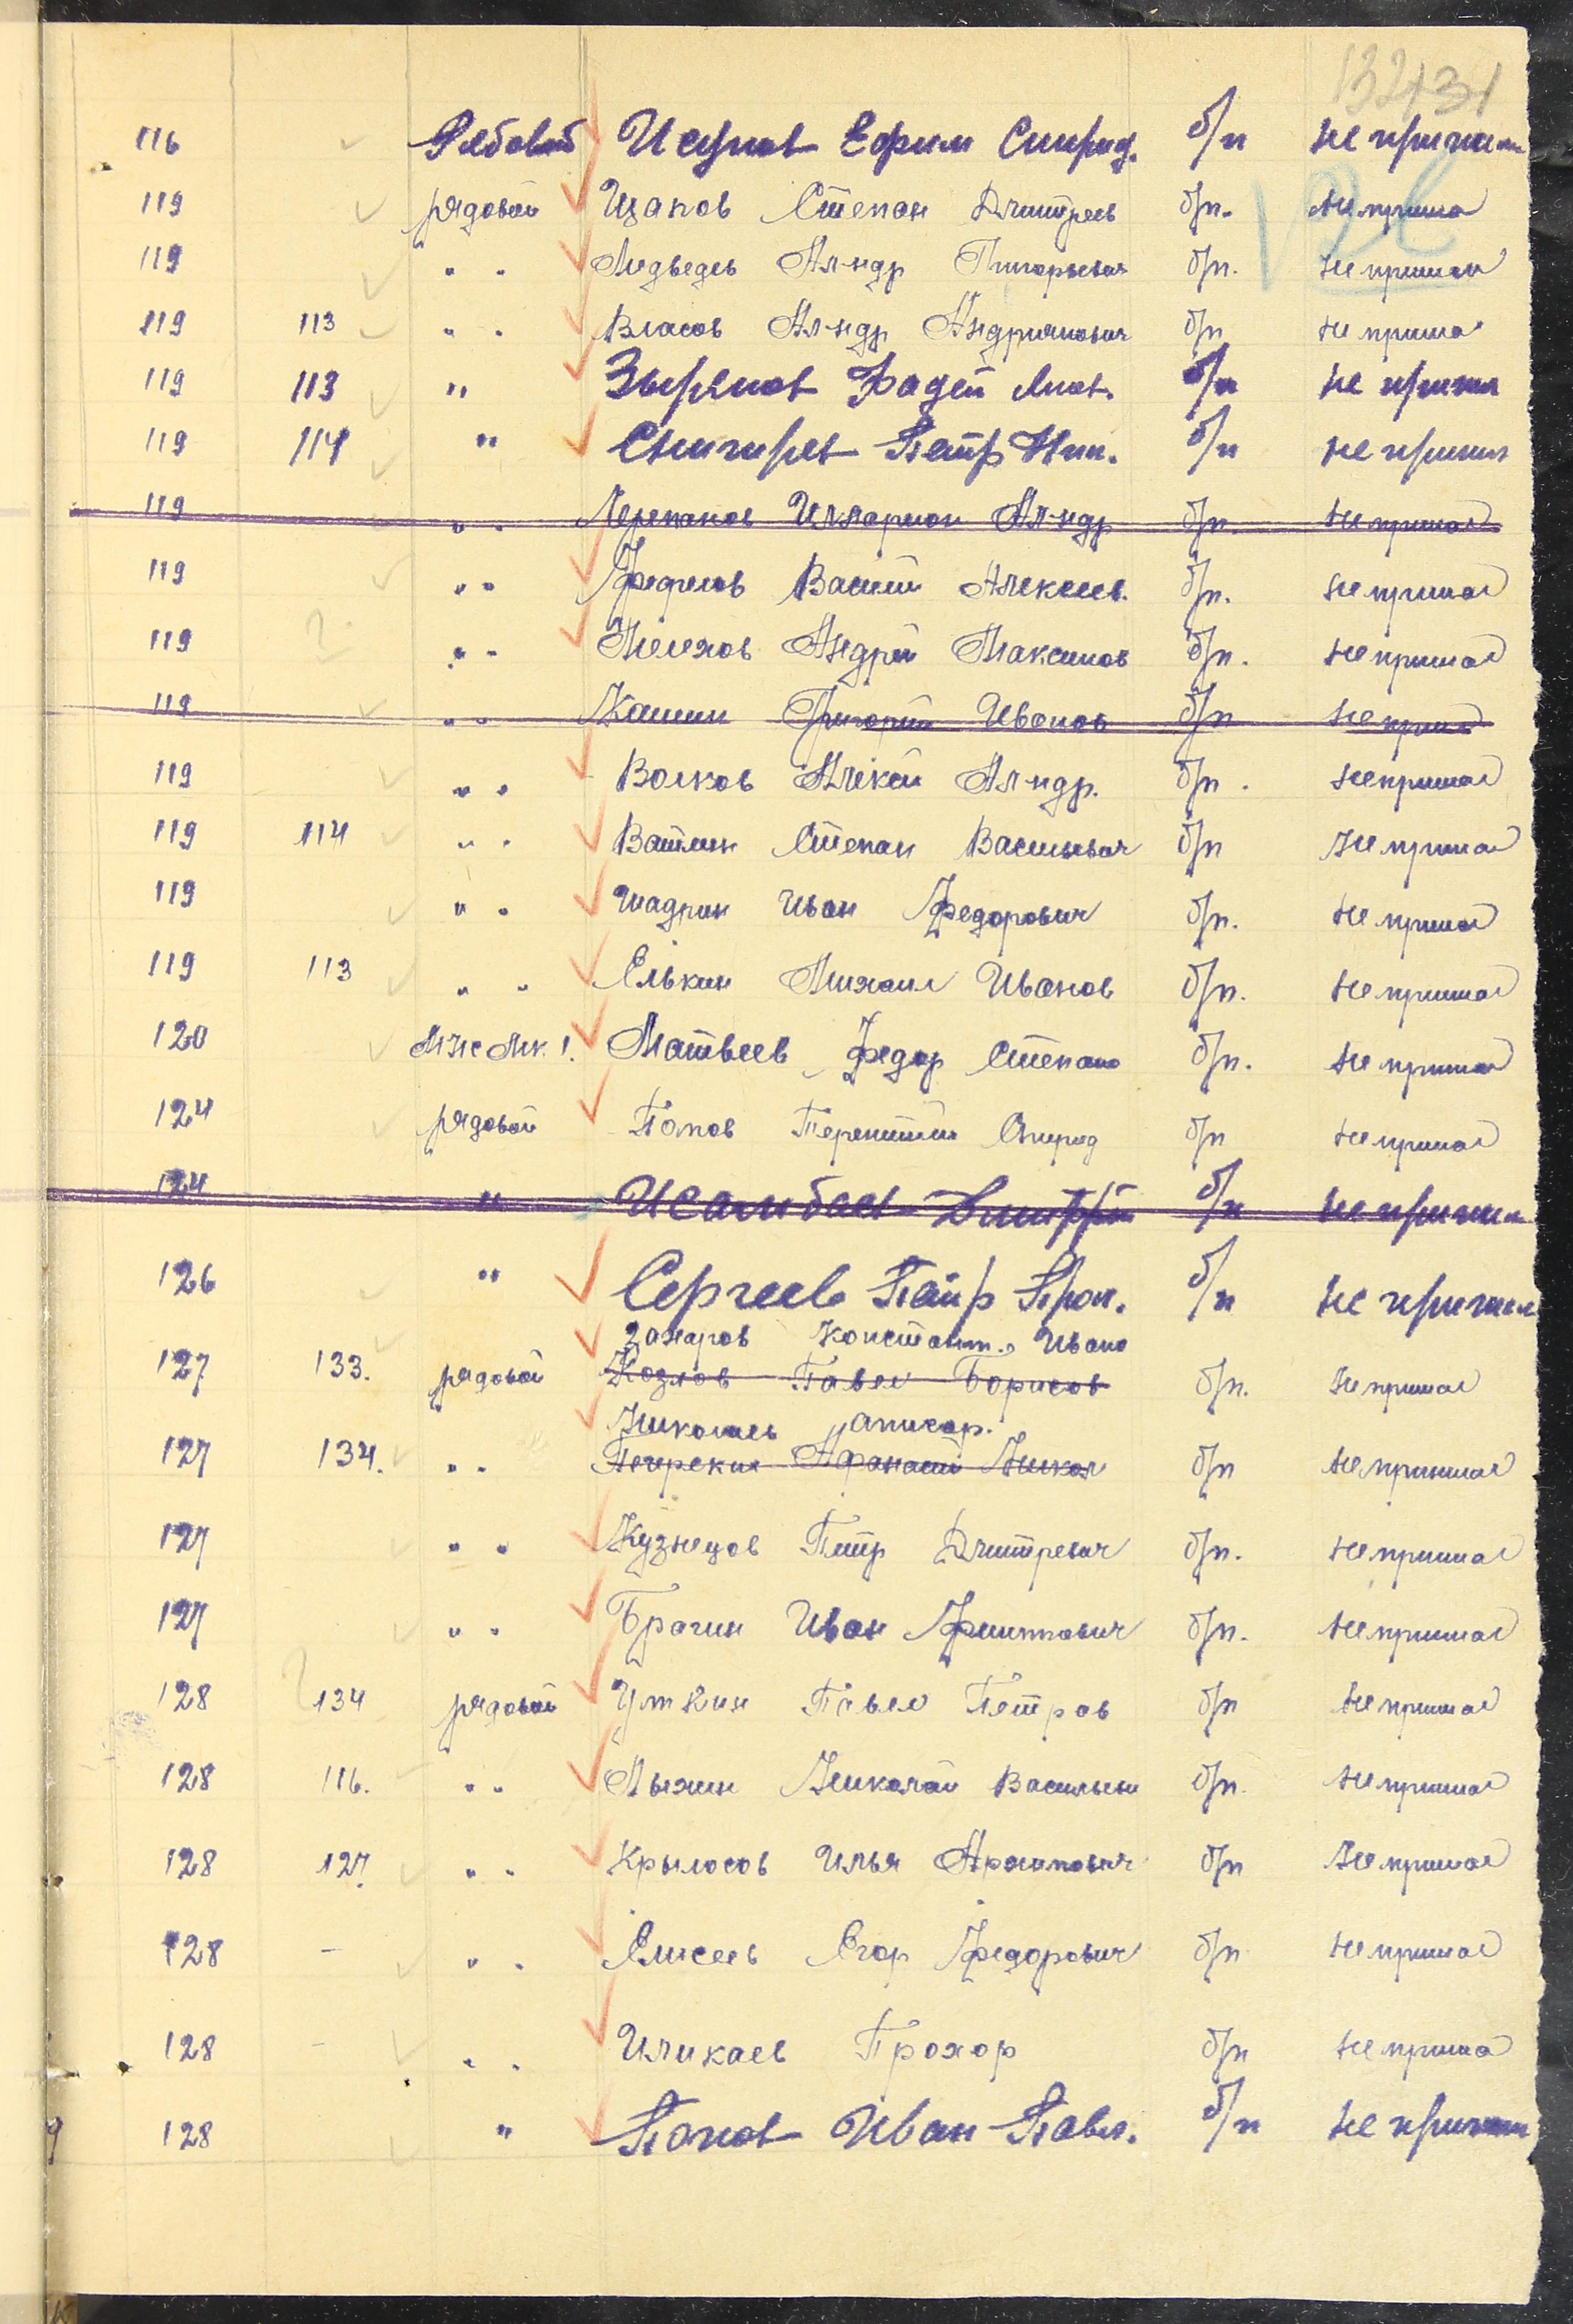 132 131
116 Рядовой Исупов Ефим Спирид. б/п не приним
119 рядовой Цапов Степан Дмитреев б/п. не принима
119 " " Медведев Ал-ндр Григорьевич б/п. не принимал
119 113 " " Власов Ал-ндр Андриянович б/п не принима
119 113 " Зырянов Фадей б/п не приним
119 114 " Снигирев Петр Ник. б/п не принимал
119 " " Черепанов Илларион Ал-ндр б/п. не принимал
119 " " Федулов Василий Алексеев. б/п. не принимал
119 " " Мелехов Андрей Максимов б/п. не принимал
119 " " Кашин Григорий Иванов б/п не приним
119 " " Волков Алексей Ал-ндр. б/п. не принимал
119 114 " " Ватлин Степан Васильевич б/п не принимал
119 " " Шадрин Иван Федорович б/п. не принимал
119 113 " " Елькин Михаил Иванов б/п. не принимал
120 Матвеев Федор Степано б/п. не принимал
124 рядовой Попов Терентий Спирид б/п не принимал
124 " Исанбаев Дмитрий б/п не приним
126 " Сергеев Петр Прок. б/п не принимал
Захаров Констант. Ивано
127 133. рядовой Козлов Павел Борисов б/п. не принимал
Николаев
127 134. " " Печерских Афанасий Никол б/п не принимал
127 " " Кузнецов Петр Дмитревич б/п. не принимал
127 " " Брагин Иван Филиппович б/п. не принимал
128 134 рядовой Уткин Павел Петров б/п не принимал
128 116. " " Лыхин Николай Васильеви б/п. не принимал
128 127. " " Крылосов Илья Архипович б/п не принимал
128 - " " Елисеев Егор Федорович б/п не принимал
128 - " " Иликаев Прохор б/п не принимал
128 " Попов Иван Павл. б/п не принимал